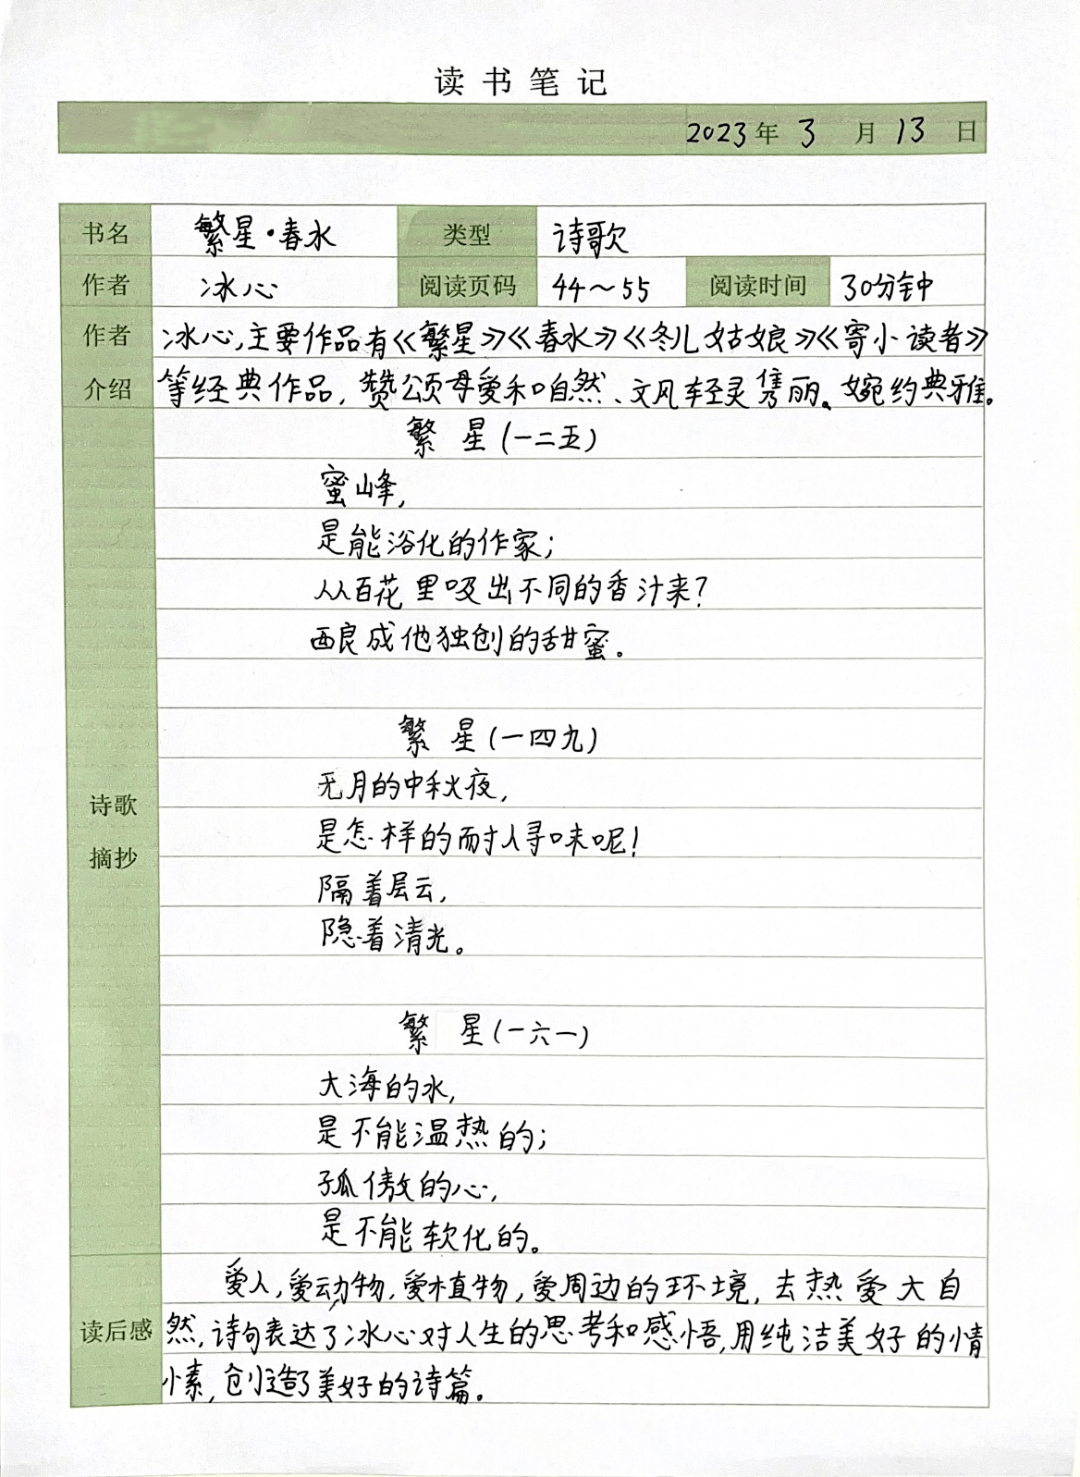 读书笔记
2023年 3 月 13 日
书名 繁星·春水 类型 诗歌
作者 冰心 阅读页码 44～55 阅读时间 30分钟
作者 冰心,主要作品有《繁星》《春水》《冬儿姑娘》《寄小读者》
介绍 等经典作品，赞颂母爱和自然、文风轻灵隽丽、婉约典雅.
繁星(一二五)
蜜峰,
是能浴化的作家;
从百花里吸出不同的香汁来?
酿成他独创的甜蜜。
繁星(一四九)
无月的中秋夜,
是怎样的耐人寻味呢!
隔着层云,
隐着清光。
繁星(一六一)
诗歌
摘抄
大海的水,
是不能温热的;
孤傲的心,
是不能软化的。
爱人,爱动物,爱植物,爱周边的环境,去热爱大自
读后感 然,诗句表达了冰心对人生的思考和感悟,用纯洁美好的情
愫,创造了美好的诗篇。